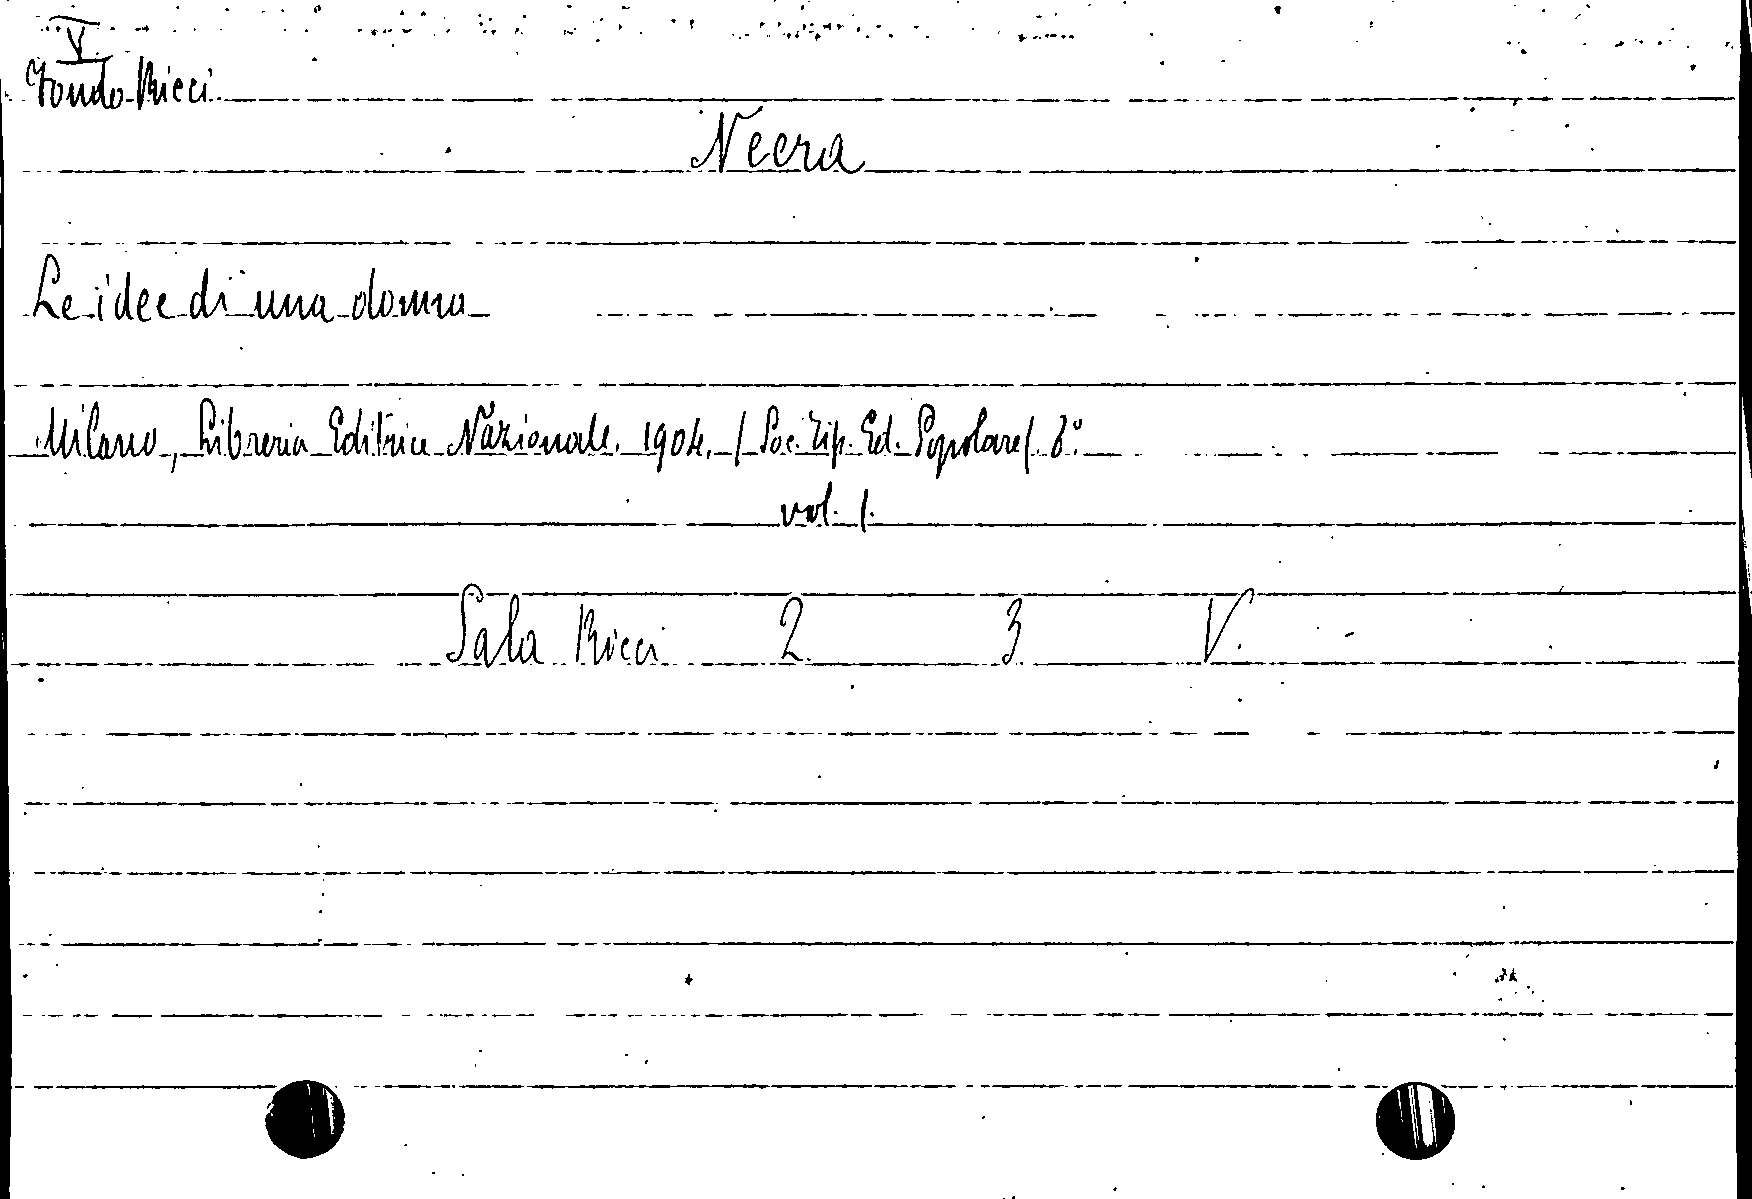 V
Fondo Ricci
Neera
Le idee di una donna
Milano, Libreria Editrice Nazionale. 1904. (Soc. Tip. Ed. Popolare(. 8°
vol. 1.
Sala Ricci 2 3 V.